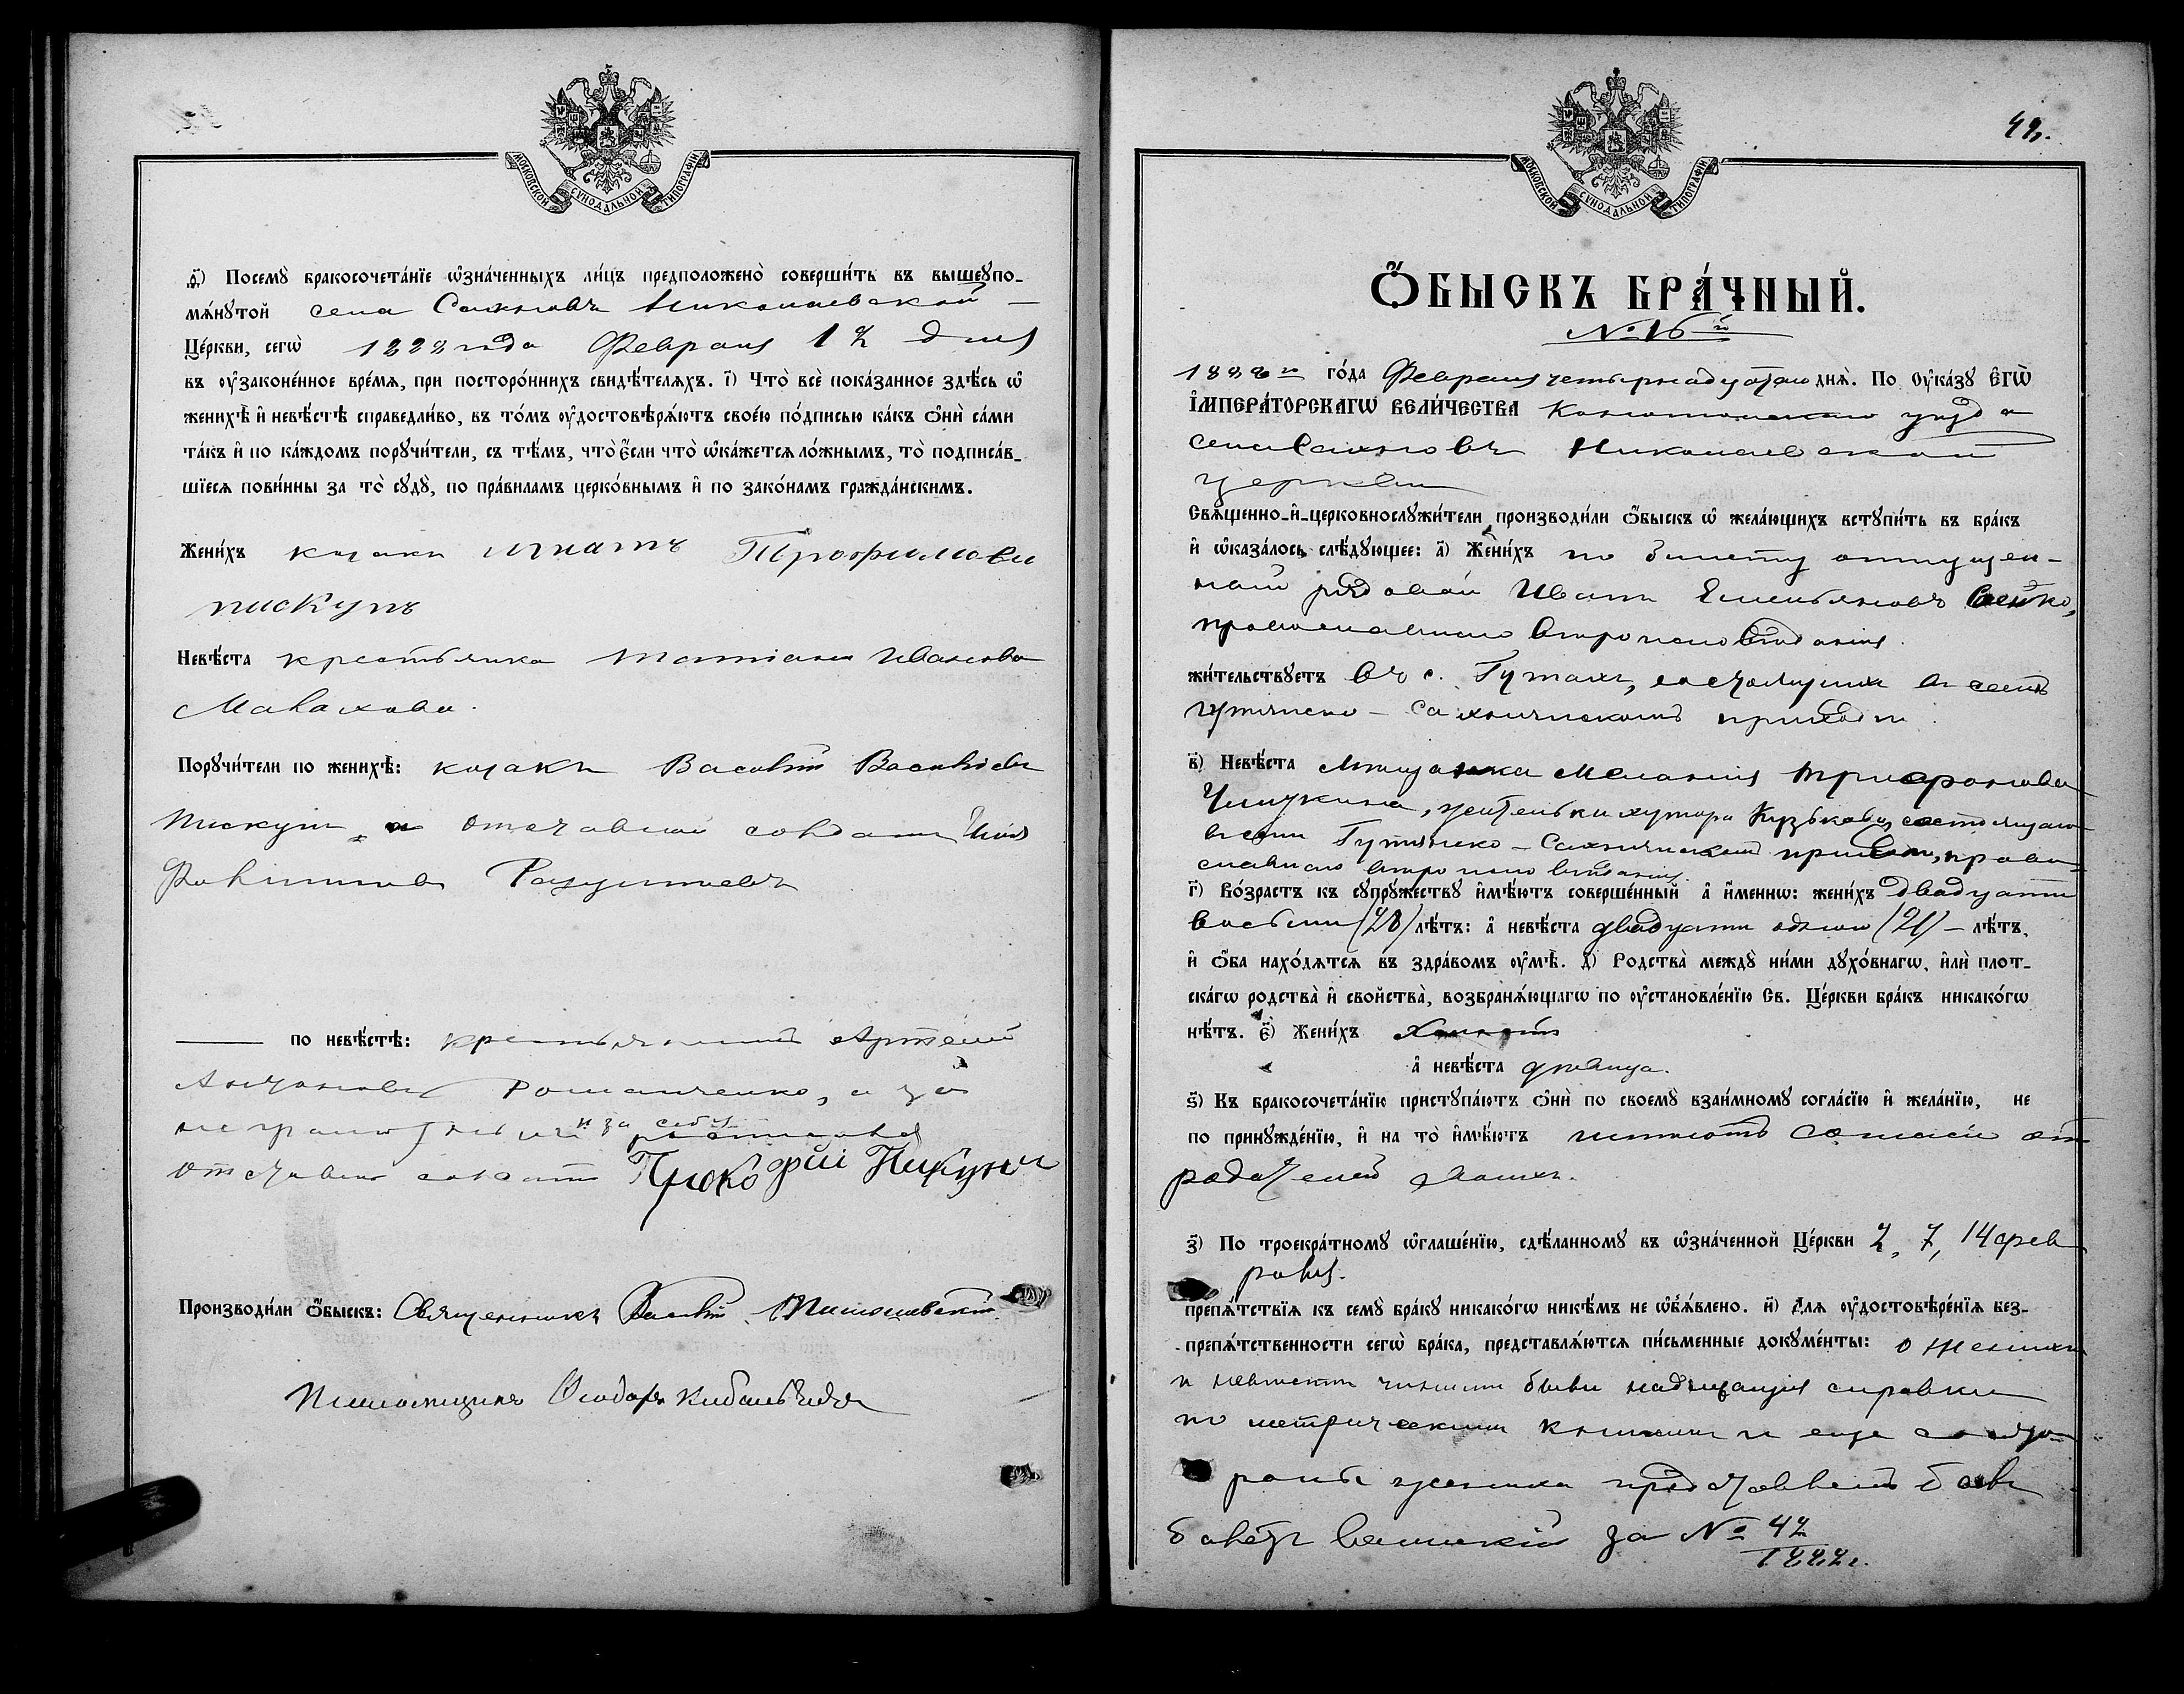 МОСКОВСКОЙ СѴНОДАЛЬНОЙ ТИПОГРАФІИ
ѳ҃) Посемꙋ̀ бракосочета́нїе ѡ҆зна́ченныхъ ли́цъ предположено̀ соверши́ть въ вышеꙋпо-
мѧ́нꙋтой села Сахновъ Николаевской —
Це́ркви, сегѡ̀ 1888 года Февраля 12 дня
въ ᲂу҆законе́нное вре́мѧ, при посторо́ннихъ свидѣ́телѧхъ. і҃) Что̀ всѐ пока́занное здѣ́сь ѡ҆
женихѣ̀ и҆ невѣ́стѣ справедли́во, въ то́мъ ᲂу҆достовѣрѧ́ютъ свое́ю по́дписью ка́къ ѻ҆нѝ са́ми
та́къ и҆ по ка́ждомъ порꙋчи́тели, съ тѣ́мъ, что̀ є҆́сли что̀ ѡ҆ка́жетсѧ ло́жнымъ, то̀ подписа́в-
шїесѧ пови́нны за то̀ сꙋдꙋ̀, по пра́виламъ церко́внымъ и҆ по зако́намъ гражда́нскимъ.
Жени́хъ козакъ Игнатъ Трофимовъ
пискунъ
Невѣ́ста крестьянка Татіана Иванова
Малахова.
Порꙋчи́тели по женихѣ̀: козакъ Василій Васильевъ
Пискунъ и отставной солдатъ Илія
Филиппов
— по невѣ́стѣ: крестьянинъ Артемій
Антоновъ Романченко, а за
неграмотныхъ и за себя росписался
отставной солдатъ Прокофій Пикунъ
Производи́ли ѻ҆́быскъ: Священникъ Василій
Псаломщикъ Ѳеодоръ
42.
МОСКОВСКОЙ СѴНОДАЛЬНОЙ ТИПОГРАФІИ
Ѻ҆́БЫСКЪ БРА́ЧНЫЙ.
№ 16й
1888го го́да Февраля четырнадцатаго днѧ̀. По ᲂу҆ка́зꙋ Є҆ГѠ̀
І҆МПЕРА́ТОРСКАГѠ ВЕЛИ́ЧЕСТВА Конотопскаго уезда
села Сахновъ Николаевской
церкви
Свѧще́нно-и҆-церковнослꙋжи́тели производи́ли ѻ҆́быскъ ѡ҆ жела́ющихъ встꙋпи́ть въ бра́къ
и҆ ѡ҆каза́лось слѣ́дꙋющее: а҃) Жени́хъ по билету отпущен-
ный рядовой Иванъ Емельяновъ
православнаго вѣроисповѣданія.
жи́тельствꙋетъ въ с. Гутахъ, состоящихъ въ семъ
Гутянско – Сахновскомъ приходѣ.
в҃) Невѣ́ста Мѣщанка Меланія Трифонова
жительки хутора Кузькова, состоящаго
въ семъ Гутянско – Сахновскомъ приходѣ, право-
славнаго вѣроисповѣданія.
г҃) Во́зрастъ къ сꙋпрꙋ́жествꙋ и҆мѣ́ютъ соверше́нный а҆̀ и҆́меннѡ: жени́хъ двадцати
восьми (28) лѣ́тъ: а҆̀ невѣ́ста двадцати одного (21) – лѣ́тъ,
и҆ ѻ҆́ба нахо́дѧтсѧ въ здра́вомъ ᲂу҆мѣ̀. д҃) Родства̀ междꙋ̀ ни́ми дꙋхо́внагѡ, и҆лѝ плот-
ска́гѡ родства̀ и҆ сво́йства̀, возбранѧ́ющагѡ по ᲂу҆становле́нїю Св. Це́ркви бра́къ никако́гѡ
нѣ́тъ. є҃) Жени́хъ Холостъ
а҆̀ невѣ́ста дѣвица.
ѕ҃) Къ бракосочета́нїю пристꙋпа́ютъ ѻ҆нѝ по своемꙋ̀ взаи́мномꙋ согла́сїю и҆ жела́нїю, не
по принꙋжде́нїю, и҆ на то̀ и҆мѣ́ютъ имѣютъ согласіе отъ
родителей своихъ.
з҃) По троекра́тномꙋ ѡ҆глаше́нїю, сдѣ́ланномꙋ въ ѡ҆зна́ченной Це́ркви 2, 7, 14 фев
раля.
препѧ́тствїѧ къ семꙋ̀ бра́кꙋ никако́гѡ никѣ́мъ не ѡ҆б̾ѧ́влено. и҃) Длѧ ᲂу҆достовѣре́нїѧ без-
препѧ́тственности сегѡ̀ бра́ка, представлѧ́ютсѧ пи́сьменные докꙋме́нты: о женихѣ
и невѣстѣ чинимы были надлежащія справки
по метрическимъ книгамъ и еще со сто-
роны жениха представленъ былъ
билетъ воинскій за № 42
1882 г.